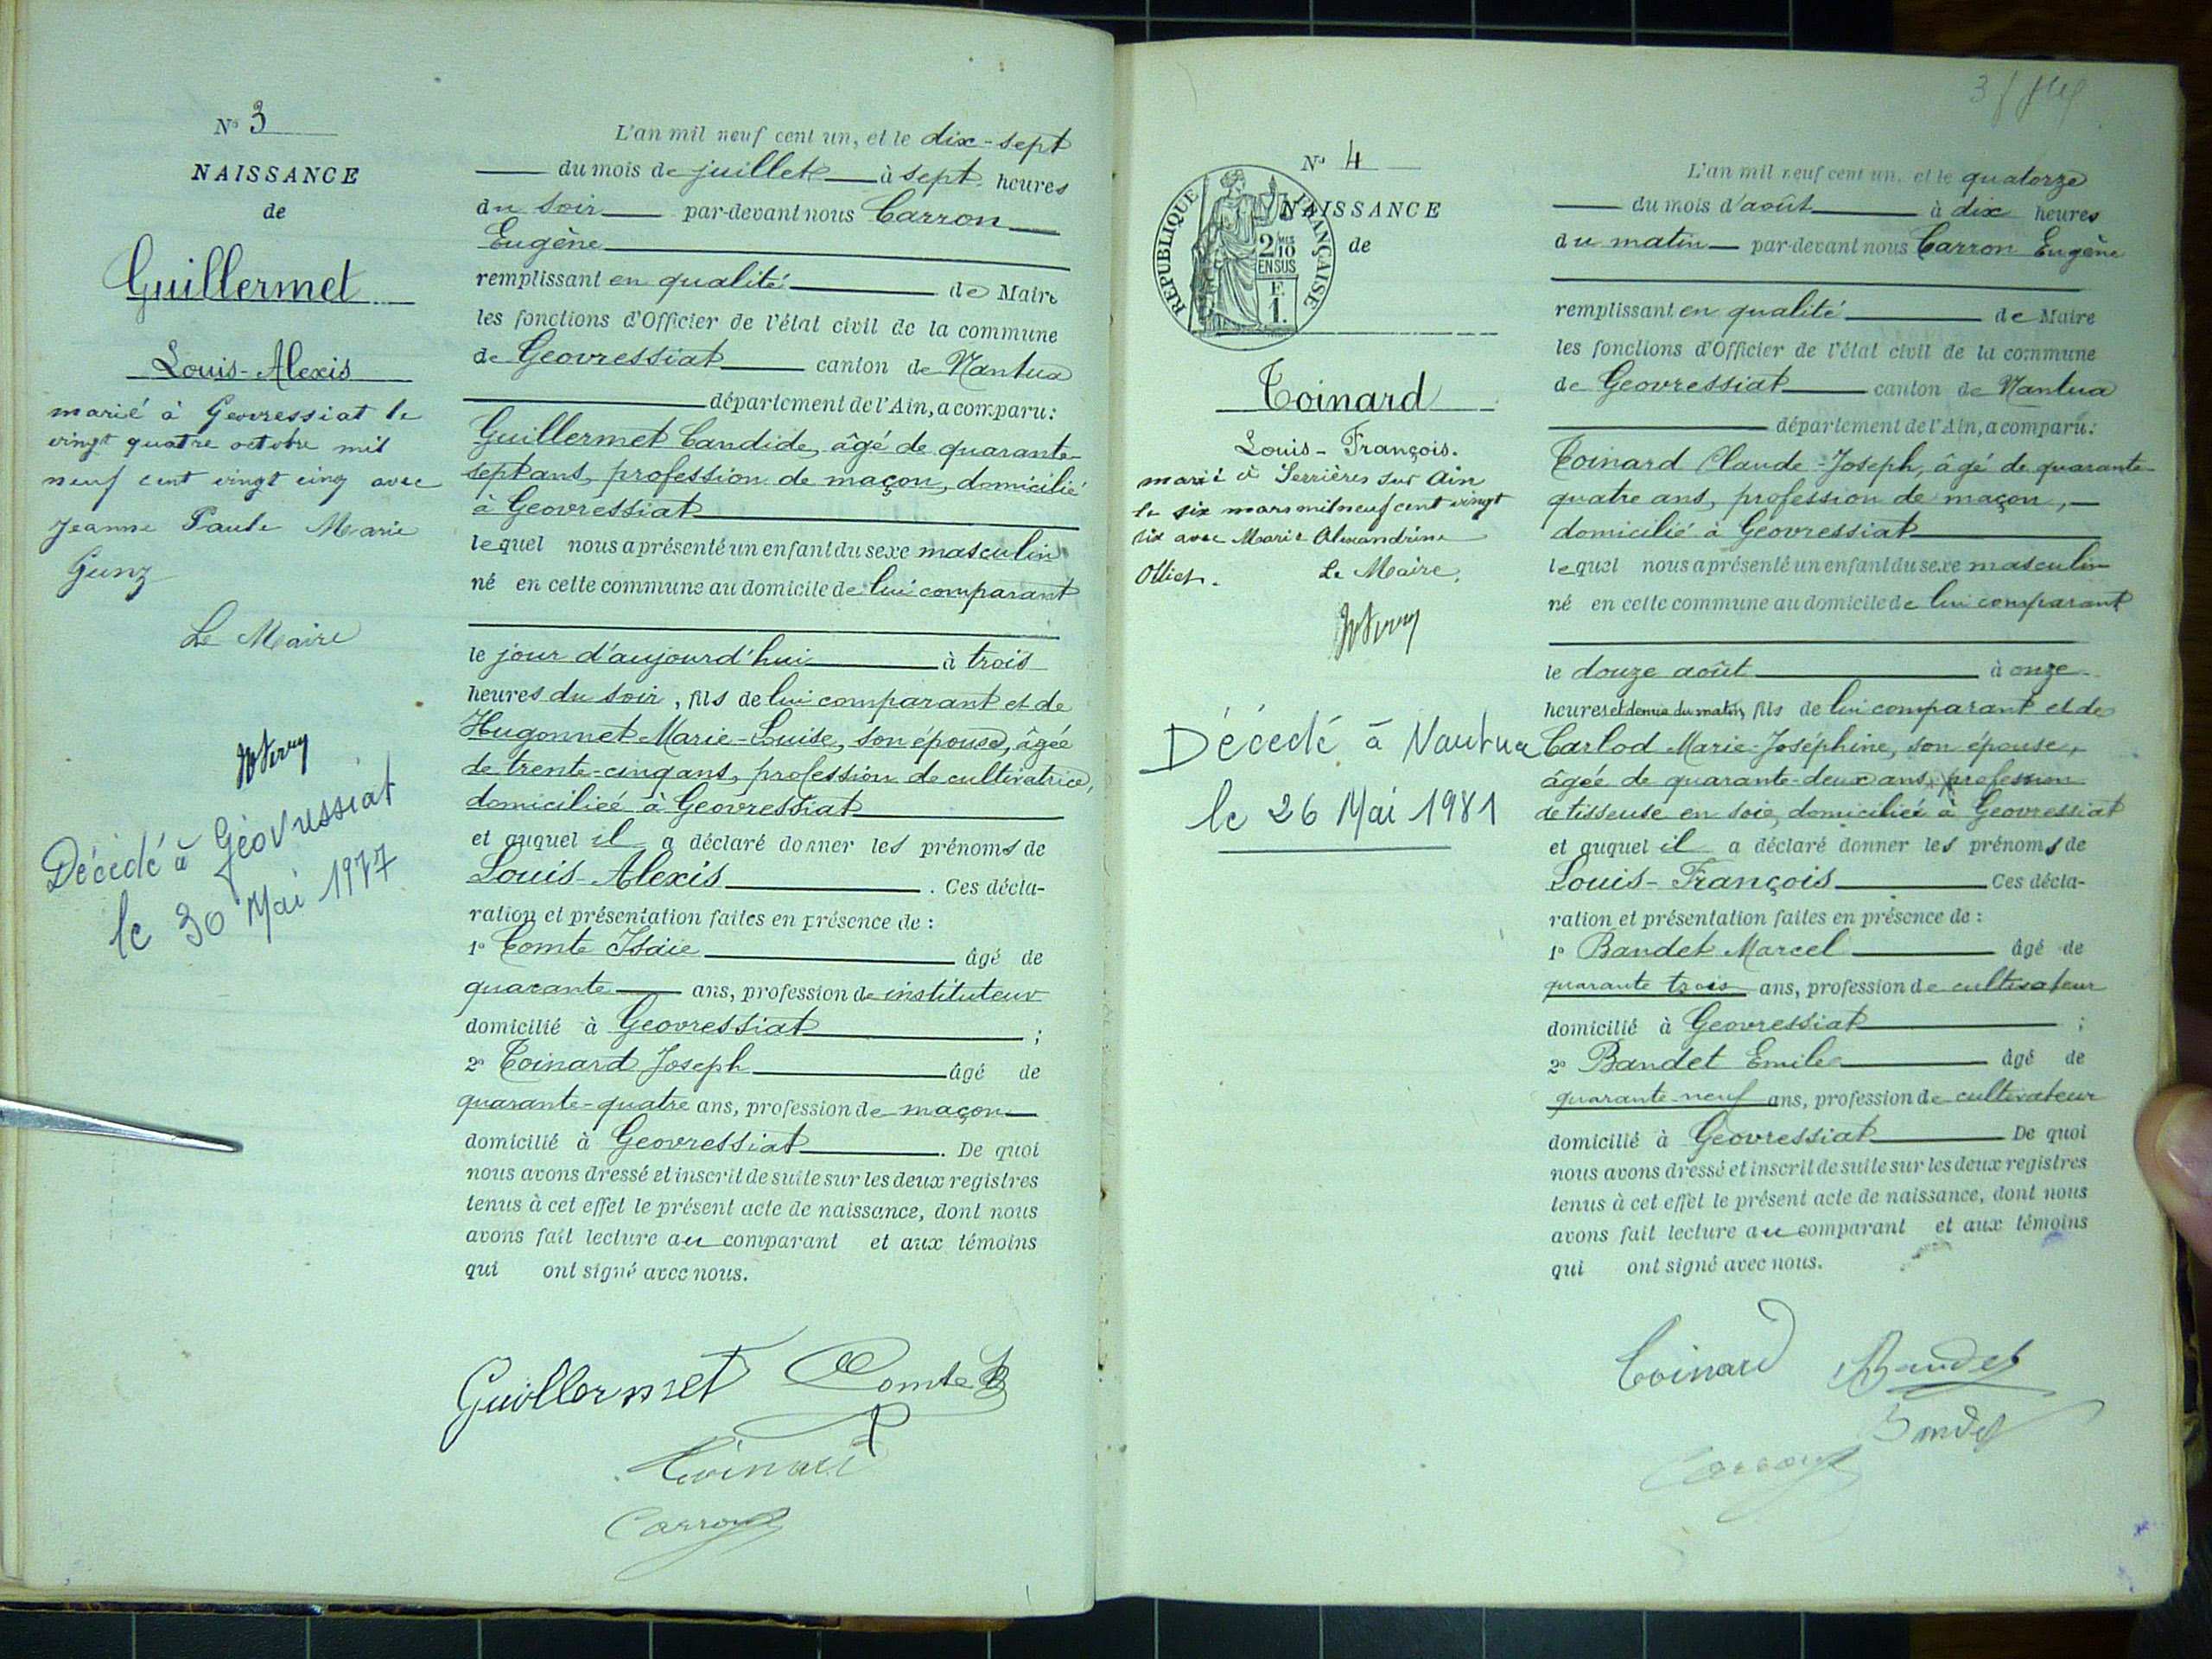 N° 3
NAISSANCE
de
Guillermet
Louis-Alexis
marié à Geovressiat le
vingt quatre octobre mil
neuf cent vingt cinq avec
Jeanne Paule Marie
Gunz
Le Maire
Décédé à Géovressiat
le 30 Mai 1977
L'an mil neuf cent un, et le dix-sept
du mois de juillet à sept heures
du soir par-devant nous Carron
Eugène
remplissant en qualité de Maire
les fonctions d'Officier de l'état civil de la commune
de Geovressiat canton de Nantua
département de l'Ain, a comparu:
Guillermet Candide, âgé de quarante-
sept ans, profession de maçon, domicilié
à Geovressiat
lequel nous a présenté un enfant du sexe masculin
né en cette commune au domicile de lui comparant
le jour d'aujourd'hui à trois
heures du soir, fils de lui comparant et de
Hugonnet Marie-Louise, son épouse, âgée
de trente-cinq ans, profession de cultivatrice,
domiciliée à Geovressiat
et auquel il a déclaré donner les prénoms de
Louis-Alexis. Ces décla-
ration et présentation faites en présence de :
1° Comte Isaïe âgé de
quarante ans, profession de instituteur
domicilié à Geovressiat ;
2° Toinard Joseph âgé de
quarante-quatre ans, profession de maçon
domicilié à Geovressiat. De quoi
nous avons dressé et inscrit de suite sur les deux registres
tenus à cet effet le présent acte de naissance, dont nous
avons fait lecture au comparant et aux témoins
qui ont signé avec nous.
Guillermet Comte
Toinard
Carron
N° 4
NAISSANCE
de
RÉPUBLIQUE FRANÇAISE
2/10 MES
EN SUS
F.
1.
Toinard
Louis-François.
marié à Serrières sur Ain
le six mars mil neuf cent vingt
six avec Marie Alexandrine
Ollier. Le Maire,
Décédé à Nantua
le 26 Mai 1981
L'an mil neuf cent un, et le quatorze
du mois d'août à dix heures
du matin par-devant nous Carron Eugène
remplissant en qualité de Maire
les fonctions d'Officier de l'état civil de la commune
de Geovressiat canton de Nantua
département de l'Ain, a comparu:
Toinard Claude-Joseph, âgé de quarante-
quatre ans, profession de maçon,
domicilié à Geovressiat
lequel nous a présenté un enfant du sexe masculin
né en cette commune au domicile de lui comparant
le douze août à onze
heures et demie du matin, fils de lui comparant et de
Carlod Marie-Joséphine, son épouse,
âgée de quarante-deux ans, profession
de tisseuse en soie, domiciliée à Geovressiat
et auquel il a déclaré donner les prénoms de
Louis-François Ces décla-
ration et présentation faites en présence de :
1° Bandet Marcel âgé de
quarante trois ans, profession de cultivateur
domicilié à Geovressiat ;
2° Bandet Emile âgé de
quarante-neuf ans, profession de cultivateur
domicilié à Geovressiat De quoi
nous avons dressé et inscrit de suite sur les deux registres
tenus à cet effet le présent acte de naissance, dont nous
avons fait lecture au comparant et aux témoins
qui ont signé avec nous.
Toinard Bandet
Bandet
Carron